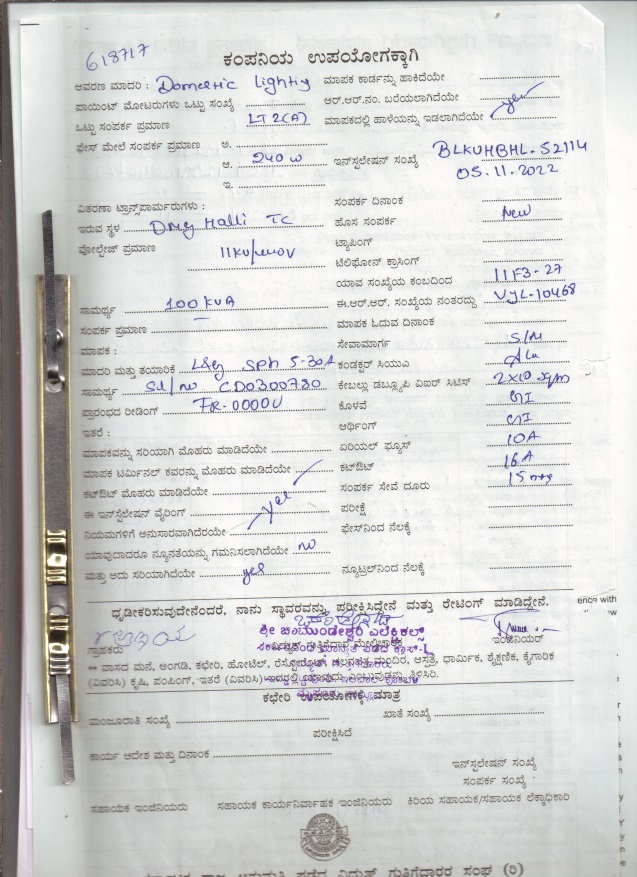 618717
ಕಂಪನಿಯ ಉಪಯೋಗಕ್ಕಾಗಿ
ಆವರಣ ಮಾದರಿ : Domestic Lighting ಮಾಪಕ ಕಾರ್ಡನ್ನು ಹಾಕಿದೆಯೇ
ಪಾಯಿಂಟ್ ಮೋಟರುಗಳು ಒಟ್ಟು ಸಂಖ್ಯೆ ಆರ್.ಆರ್.ನಂ. ಬರೆಯಲಾಗಿದೆಯೇ
ಒಟ್ಟು ಸಂಪರ್ಕ ಪ್ರಮಾಣ LT2(A) ಮಾಪಕದಲ್ಲಿ ಹಾಳೆಯನ್ನು ಇಡಲಾಗಿದೆಯೇ yes
ಫೇಸ್ ಮೇಲೆ ಸಂಪರ್ಕ ಪ್ರಮಾಣ ಅ.
ಆ. 240 W ಇನ್‌ಸ್ಟಲೇಷನ್ ಸಂಖ್ಯೆ BLKUHBHL-52114
ಇ. 05.11.2022
ವಿತರಣಾ ಟ್ರಾನ್ಸ್‌ಪಾರ್ಮರುಗಳು : ಸಂಪರ್ಕ ದಿನಾಂಕ
ಇರುವ ಸ್ಥಳ Halli TC ಹೊಸ ಸಂಪರ್ಕ New
ವೋಲ್ಟೇಜ್ ಪ್ರಮಾಣ 11KV ಟ್ಯಾಪಿಂಗ್
ಟೆಲಿಫೋನ್ ಕ್ರಾಸಿಂಗ್
ಯಾವ ಸಂಖ್ಯೆಯ ಕಂಬದಿಂದ 11F3-27
ಸಾಮರ್ಥ್ಯ 100 KVA ಈ.ಆರ್.ಆರ್. ಸಂಖ್ಯೆಯ ನಂತರದ್ದು VJL-10468
ಸಂಪರ್ಕ ಪ್ರಮಾಣ ಮಾಪಕ ಓದುವ ದಿನಾಂಕ
ಮಾಪಕ : ಸೇವಾಮಾರ್ಗ S/M
ಮಾದರಿ ಮತ್ತು ತಯಾರಿಕೆ L&G SPH 5-30A ಕಂಡಕ್ಟರ್ ಸಿಯುಎ
ಸಾಮರ್ಥ್ಯ Sl/no CD0300780 ಕೇಬಲ್ಲು ಡಬ್ಲ್ಯೂಪಿ ವಿಐರ್ ಸಿಟಿಸ್ 2x10 sqm
ಪ್ರಾರಂಭದ ರೀಡಿಂಗ್ FR-0000U ಕೊಳವೆ GI
ಇತರೆ : ಆರ್ಥಿಂಗ್ GI
ಮಾಪಕವನ್ನು ಸರಿಯಾಗಿ ಮೊಹರು ಮಾಡಿದೆಯೇ ಏರಿಯಲ್ ಫ್ಯೂಸ್ 10A
ಮಾಪಕ ಟರ್ಮಿನಲ್ ಕವರನ್ನು ಮೊಹರು ಮಾಡಿದೆಯೇ ಕಟ್‌ಔಟ್ 16A
ಕಟ್‌ಔಟ್ ಮೊಹರು ಮಾಡಿದೆಯೇ ಸಂಪರ್ಕ ಸೇವೆ ದೂರು
ಈ ಇನ್‌ಸ್ಟಲೇಷನ್ ವೈರಿಂಗ್ yes ಪರೀಕ್ಷೆ
ನಿಯಮಗಳಿಗೆ ಅನುಸಾರವಾಗಿದೆಯೇ ಫೇಸ್‌ನಿಂದ ನೆಲಕ್ಕೆ
ಯಾವುದಾದರೂ ನ್ಯೂನತೆಯನ್ನು ಗಮನಿಸಲಾಗಿದೆಯೇ no
ಮತ್ತು ಅದು ಸರಿಯಾಗಿದೆಯೇ yes ನ್ಯೂಟ್ರಲ್‌ನಿಂದ ನೆಲಕ್ಕೆ
ಧೃಡೀಕರಿಸುವುದೇನೆಂದರೆ, ನಾನು ಸ್ಥಾವರವನ್ನು ಪರೀಕ್ಷಿಸಿದ್ದೇನೆ ಮತ್ತು ರೇಟಿಂಗ್ ಮಾಡಿದ್ದೇನೆ.
ಶ್ರೀ ಚಾಮುಂಡೇಶ್ವರಿ ಎಲೆಕ್ಟ್ರಿಕಲ್ಸ್
ಗ್ರಾಹಕರು ಇಂಜಿನಿಯರ್
** ವಾಸದ ಮನೆ, ಅಂಗಡಿ, ಕಛೇರಿ, ಹೋಟೆಲ್, ಮಂದಿರ, ಆಸ್ಪತ್ರೆ, ಧಾರ್ಮಿಕ, ಶೈಕ್ಷಣಿಕ, ಕೈಗಾರಿಕೆ
(ವಿವರಿಸಿ) ಕೃಷಿ, ಪಂಪಿಂಗ್, ಇತರೆ (ವಿವರಿಸಿ) ತಿಳಿಸಿರಿ.
ಕಛೇರಿ ಉಪಯೋಗಕ್ಕೆ ಮಾತ್ರ
ಮಂಜೂರಾತಿ ಸಂಖ್ಯೆ ಖಾತೆ ಸಂಖ್ಯೆ
ಪರೀಕ್ಷಿಸಿದೆ
ಕಾರ್ಯ ಆದೇಶ ಮತ್ತು ದಿನಾಂಕ
ಇನ್‌ಸ್ಟಲೇಷನ್ ಸಂಖ್ಯೆ
ಸಂಪರ್ಕ ಸಂಖ್ಯೆ
ಸಹಾಯಕ ಇಂಜಿನಿಯರು ಸಹಾಯಕ ಕಾರ್ಯನಿರ್ವಾಹಕ ಇಂಜಿನಿಯರು ಕಿರಿಯ ಸಹಾಯಕ/ಸಹಾಯಕ ಲೆಕ್ಕಾಧಿಕಾರಿ